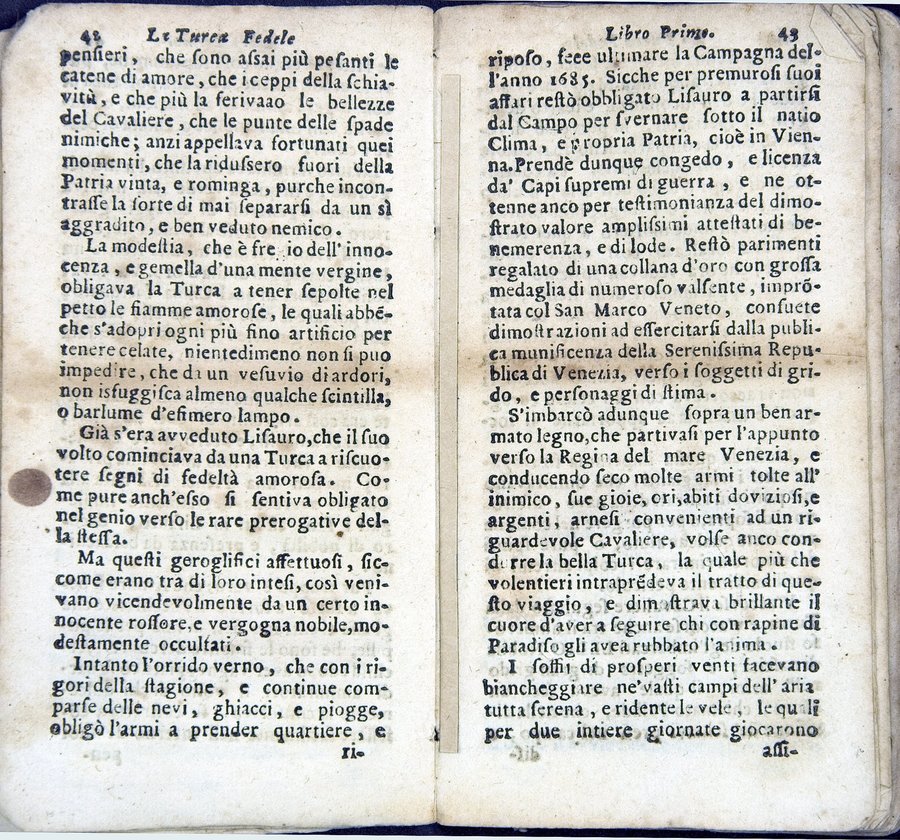 42 La Turca Fedele
pensieri, che sono assai più pesanti le
catene di amore, che i ceppi della schia-
vitù, e che più la ferivaao le bellezze
del Cavaliere, che le punte delle spade
nimiche; anzi appellava fortunati quei
momenti, che la ridussero fuori della
Patria vinta, e rominga, purche incon-
trasse la sorte di mai separarsi da un sì
aggradito, e ben veduto nemico.
La modestia, che è fre io dell' inno-
cenza, e gemella d'una mente vergine,
obligava la Turca a tener sepolte nel
petto le fiamme amorose, le quali abbẽ-
che s'adopri ogni più fino artificio per
tenere celate, nientedimeno non si puo
impedire, che da un vesuvio di ardori,
non isfuggisca almeno qualche scintilla,
o barlume d'efimero lampo.
Già s'era avveduto Lisauro, che il suo
volto cominciava da una Turca a riscuo-
tere segni di fedeltà amorosa. Co-
me pure anch'esso si sentiva obligato
nel genio verso le rare prerogative del-
la stessa.
Ma questi geroglifici affettuosi, sic-
come erano tra di loro intesi, così veni-
vano vicendevolmente da un certo in-
nocente rossore, e vergogna nobile, mo-
destamente occultati.
Intanto l'orrido verno, che con i ri-
gori della stagione, e continue com-
parse delle nevi, ghiacci, e piogge,
obligò l'armi a prender quartiere, e
ri-
Libro Primo. 43
riposo, fece ultimare la Campagna del-
l'anno 1685. Sicche per premurosi suoi
affari restò obbligato Lisauro a partirsi
dal Campo per svernare sotto il natio
Clima, e propria Patria, cioè in Vien-
na. Prendè dunque congedo, e licenza
da' Capi supremi di guerra, e ne ot-
tenne anco per testimonianza del dimo-
strato valore amplissimi attestati di be-
nemerenza, e di lode. Restò parimenti
regalato di una collana d'oro con grossa
medaglia di numeroso valsente, imprõ-
tata col San Marco Veneto, consuete
dimostrazioni ad essercitarsi dalla publi-
ca munificenza della Serenissima Repu-
blica di Venezia, verso i soggetti di gri-
do, e personaggi di stima.
S'imbarcò adunque sopra un ben ar-
mato legno, che partivasi per l'appunto
verso la Regina del mare Venezia, e
conducendo seco molte armi tolte all'
inimico, sue gioie, ori, abiti doviziosi, e
argenti, arnesi convenienti ad un ri-
guardevole Cavaliere, volse anco con-
durre la bella Turca, la quale più che
volentieri intraprẽdeva il tratto di que-
sto viaggio, e dimostrava brillante il
cuore d'aver a seguire chi con rapine di
Paradiso gli avea rubbato l'anima.
I soffii di prosperi venti facevano
biancheggiare ne' vasti campi dell' aria
tutta serena, e ridente le vele, le quali
per due intiere giornate giocarono
assi-